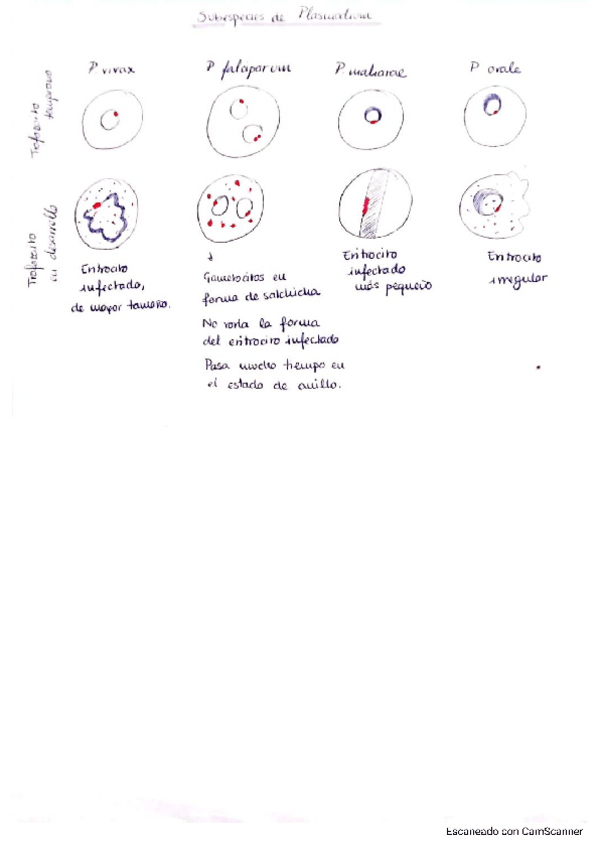 Subespecies de Plasmodium
P vivax
P falciparum
P malariae
P ovale
Trofozoito
temprano
Trofozoito
en desarrollo
Eritrocito
infectado,
de mayor tamaño.
Gametocitos en
forma de salchicha
No varia la forma
del eritrocito infectado
Pasa mucho tiempo en
el estado de anillo.
Eritrocito
infectado
más pequeño
Eritrocito
irregular
Escaneado con CamScanner